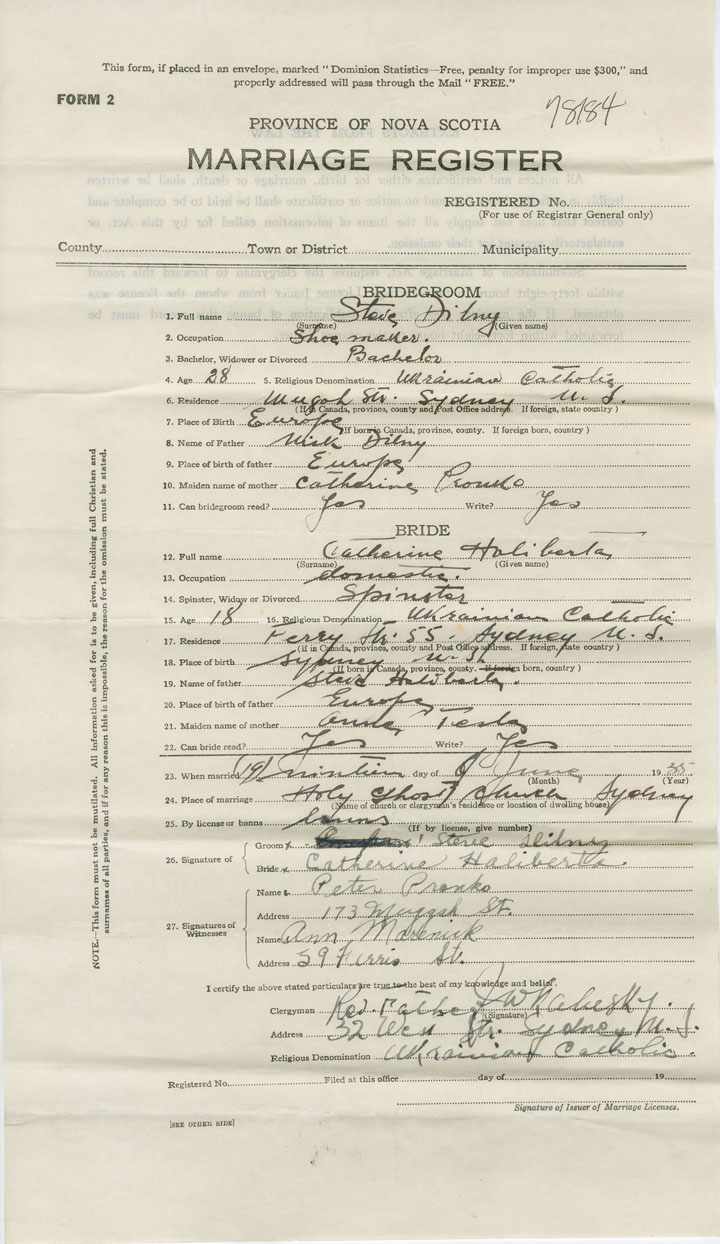 This form, if placed in an envelope, marked "Dominion Statistics—Free, penalty for improper use $300," and
properly addressed will pass through the Mail "FREE."
FORM 2
78184
PROVINCE OF NOVA SCOTIA
MARRIAGE REGISTER
REGISTERED No.
(For use of Registrar General only)
County Town or District Municipality
BRIDEGROOM
1. Full name Steve Dilny
(Surname) (Given name)
2. Occupation Shoe maker.
3. Bachelor, Widower or Divorced Bachelor
4. Age 28 5. Religious Denomination Ukrainian Catholic
6. Residence Str. Sydney N. S.
(If in Canada, province, county and Post Office address. If foreign, state country)
7. Place of Birth Europe
(If born in Canada, province, county. If foreign born, country)
8. Name of Father Nick Dilny
9. Place of birth of father Europe
10. Maiden name of mother Catherine Pronko
11. Can bridegroom read? Yes Write? Yes
BRIDE
12. Full name Catherine Haliberta
(Surname) (Given name)
13. Occupation domestic.
14. Spinster, Widow or Divorced Spinster
15. Age 18 16. Religious Denomination Ukrainian Catholic
17. Residence Ferry Str. 55. Sydney N. S.
(if in Canada, province, county and Post Office address. If foreign, state country)
18. Place of birth Sydney N. S.
(If born in Canada, province, county. If foreign born, country)
19. Name of father Steve Haliberta.
20. Place of birth of father Europe
21. Maiden name of mother Anna Tesla
22. Can bride read? Yes Write? Yes
23. When married (19) day of June 1935
(Month) (Year)
24. Place of marriage Holy Ghost Church Sydney
(Name of church or clergyman's residence or location of dwelling house)
25. By license or banns banns
(If by license, give number)
26. Signature of
Groom x Steve Dilney
Bride x Catherine Haliberta.
27. Signatures of Witnesses
Name Peter Pronko
Address 173 Muggah St.
Name Ann Marenick
Address 59 Ferris St.
I certify the above stated particulars are true to the best of my knowledge and belief.
Clergyman Rev. Father
(Signature)
Address 32 West Str. Sydney N. S.
Religious Denomination Ukrainian Catholic.
Registered No. Filed at this office day of 19
Signature of Issuer of Marriage Licenses.
[SEE OTHER SIDE]
NOTE.—This form must not be mutilated. All information asked for is to be given, including full Christian and
surnames of all parties, and if for any reason this is impossible, the reason for the omission must be stated.